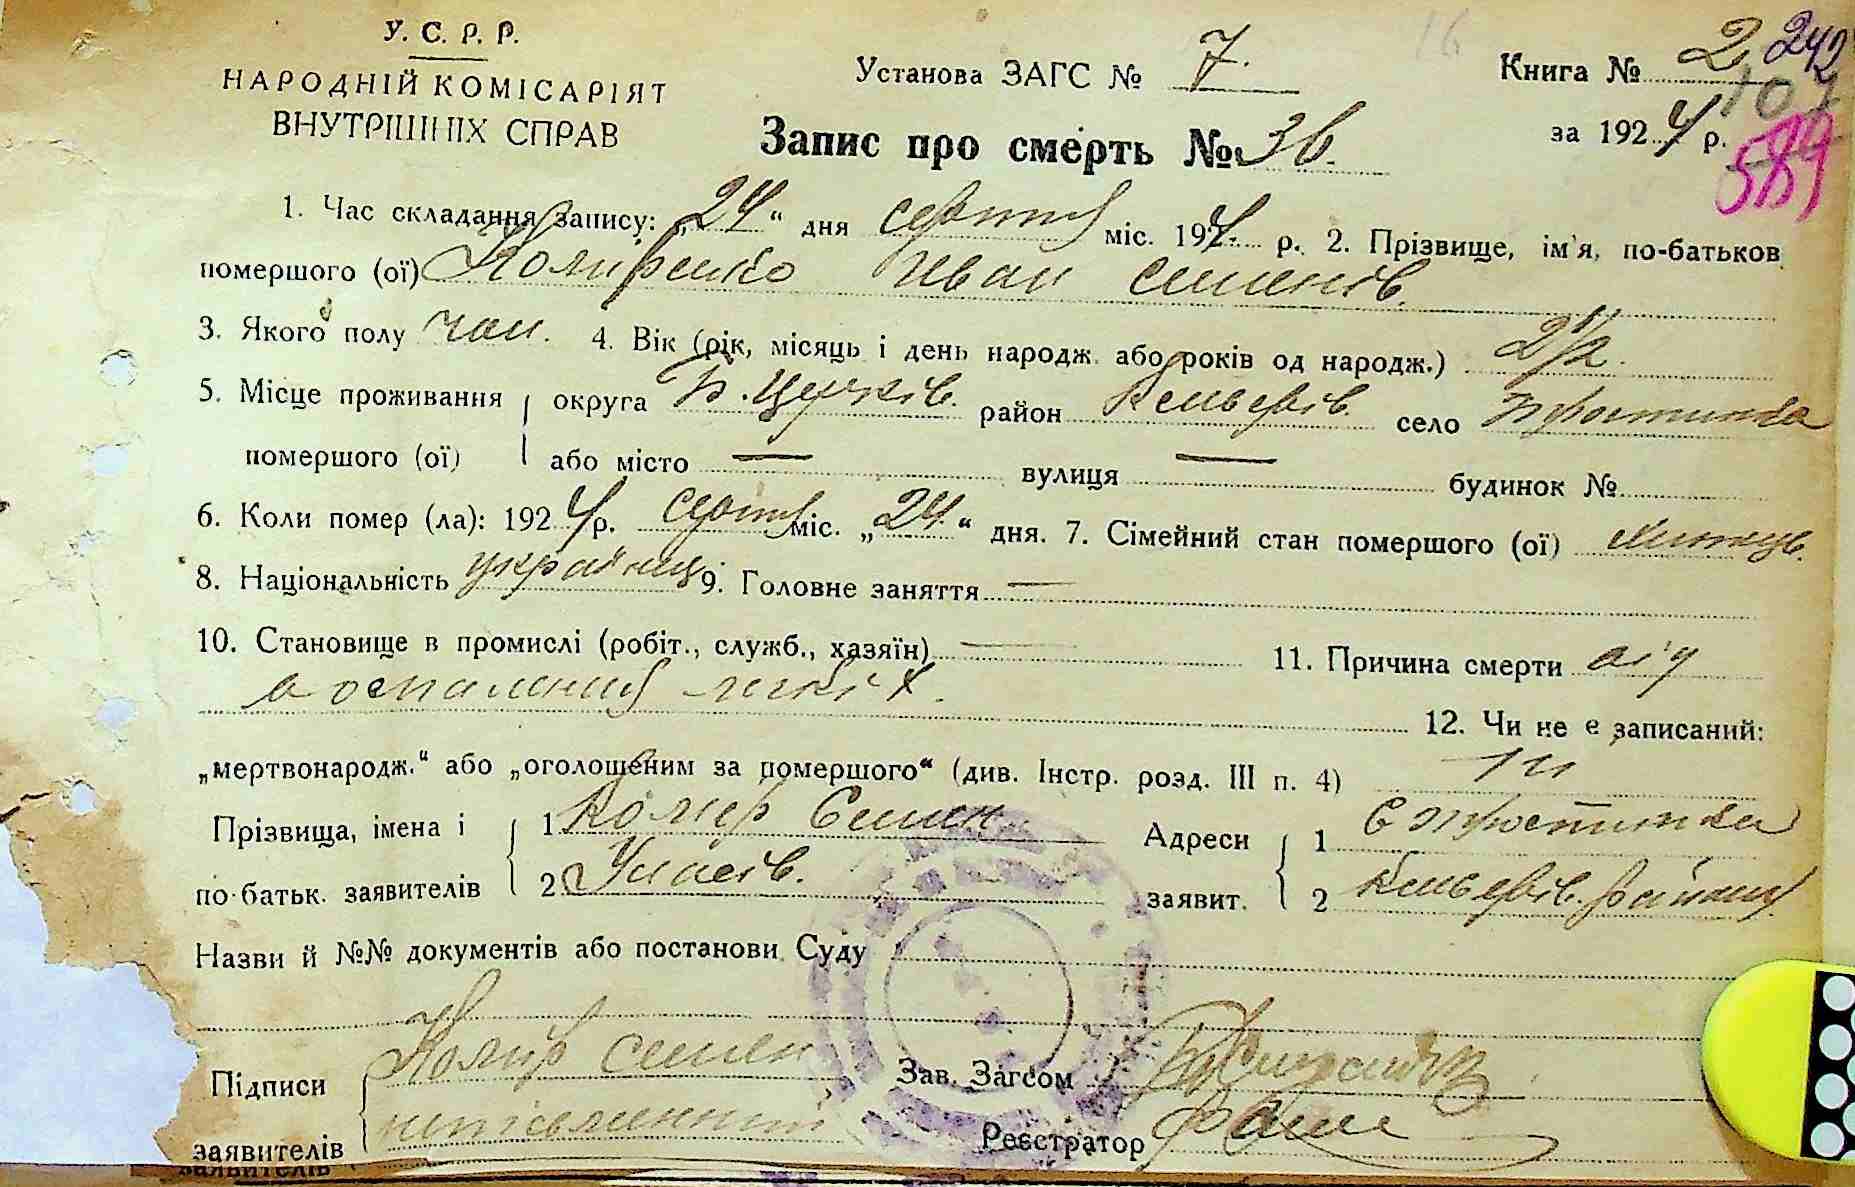 У. С. Р. Р.
НАРОДНІЙ КОМІСАРІЯТ
ВНУТРІШНІХ СПРАВ
Установа ЗАГС № 7.
Книга № 2 242
107
за 1924 р.
589
Запис про смерть № 36.
1. Час складання запису: „24“ дня серпня міс. 1924 р. 2. Прізвище, ім'я, по-батьков
помершого (ої) Иван Семенів.
3. Якого полу чол. 4. Вік (рік, місяць і день народж. або років од народж.) 2 1/2.
5. Місце проживання округа Б. Церків. район село
помершого (ої) або місто — вулиця — будинок №
6. Коли помер (ла): 1924 р. серпня міс. „24“ дня. 7. Сімейний стан помершого (ої)
8. Національність українц 9. Головне заняття —
10. Становище в промислі (робіт., служб., хазяїн) — 11. Причина смерти від
воспаления легкіх.
12. Чи не є записаний:
„мертвонародж.“ або „оголошеним за помершого“ (див. Інстр. розд. III п. 4) ні
Прізвища, імена і 1 Семен Адреси 1
по-батьк. заявителів 2 Уласів. заявит. 2 району
Назви й №№ документів або постанови Суду
Підписи Семен Зав. Загсом
заявителів неписьменний Реєстратор
заявителів